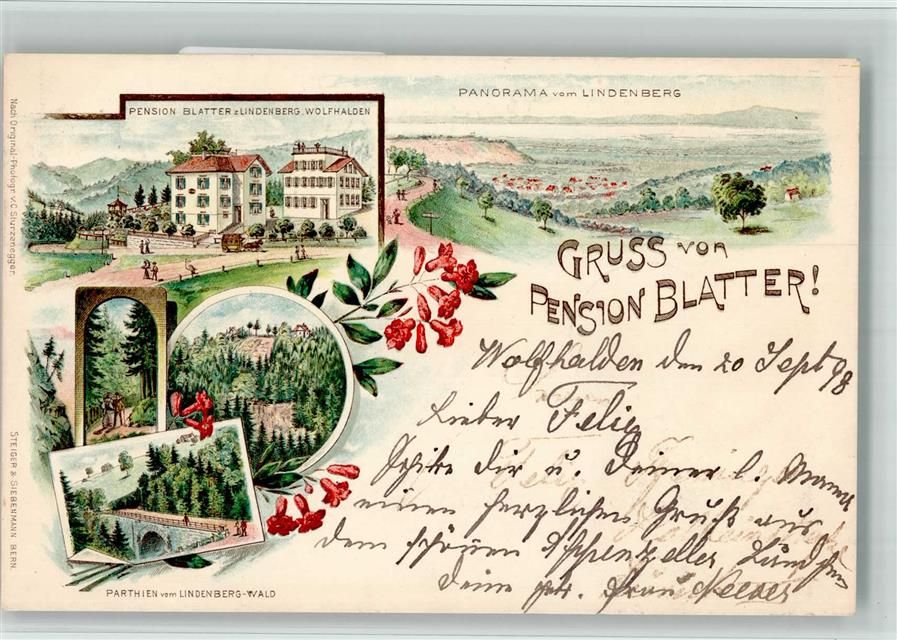 PENSION BLATTER z LINDENBERG. WOLFHALDEN
PANORAMA vom LINDENBERG
GRUSS von
PENSION BLATTER!
Wolfhalden den 20 Sept 98
Lieber Felix
Schike dir u. Deiner l. Mama
einen herzlichen Gruß aus
dem schönen Appenzeller Ländchen
Deine gtr. Frau
PARTHIEN vom LINDENBERG-WALD
Nach Original-Photogr. v. C. Sturzenegger.
STEIGER & SIEBENMANN BERN.